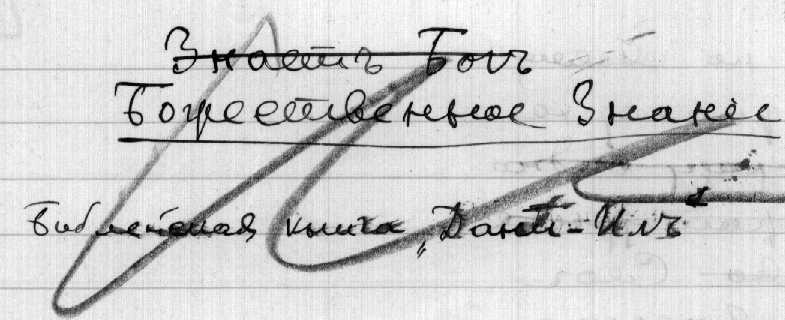 Знаетъ Богъ
Божественное Знание
Библейская книга „Данiи-Илъ“